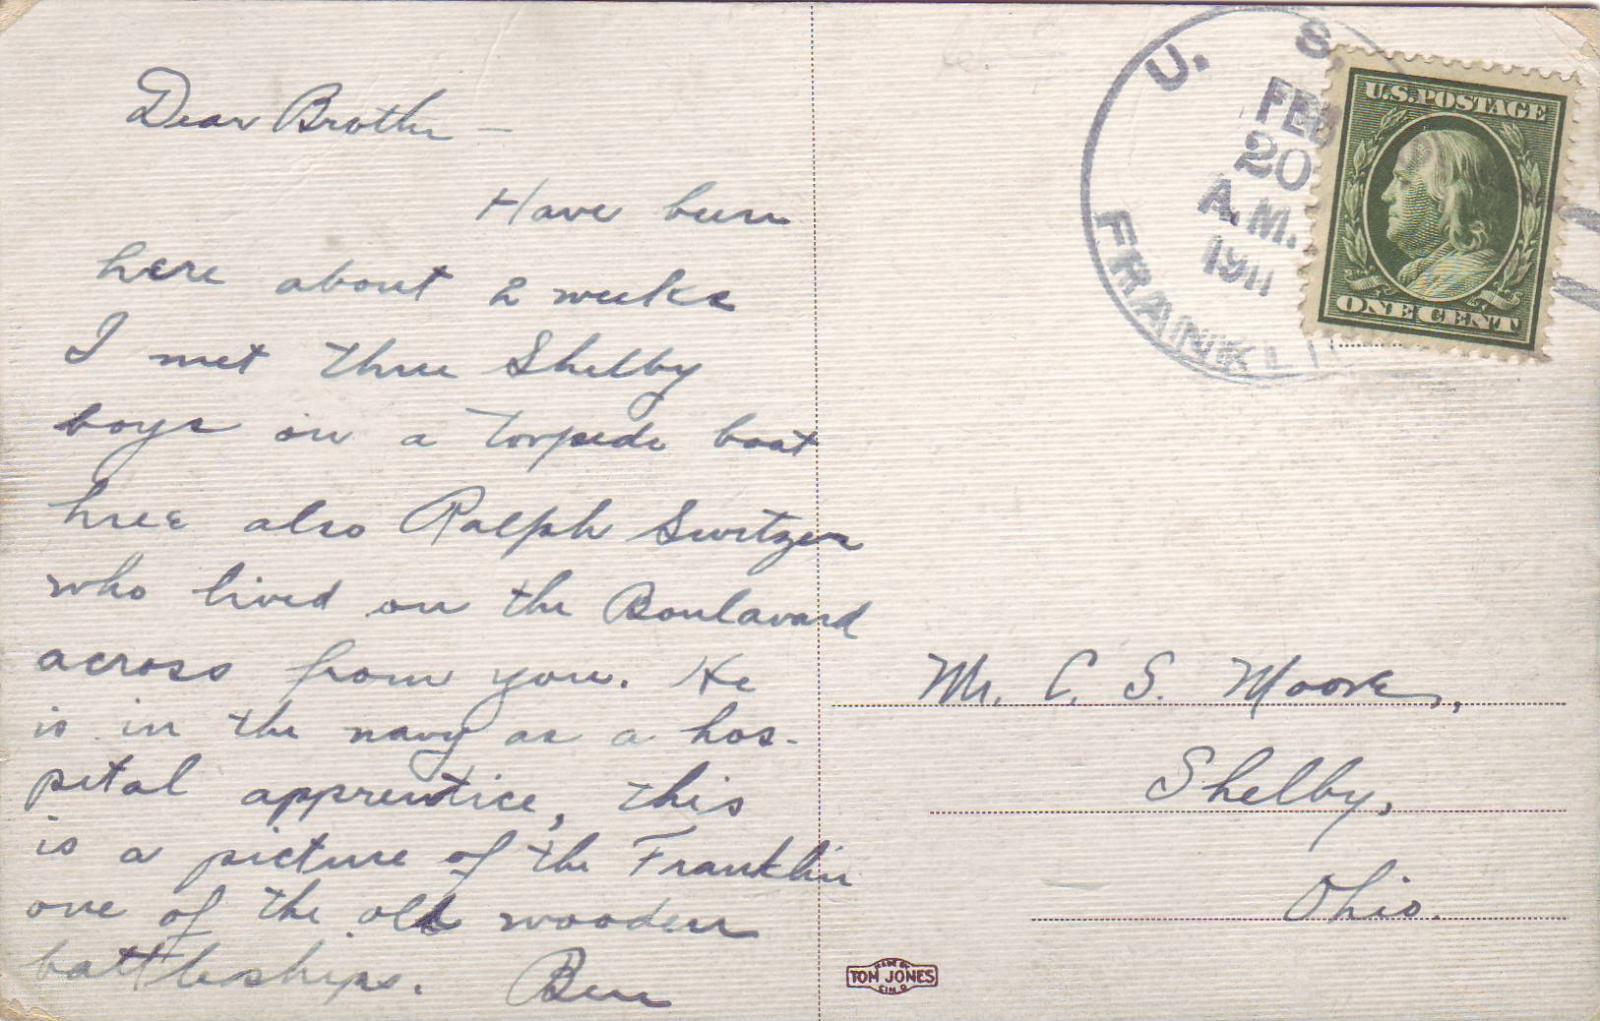 Dear Brother —
Have been
here about 2 weeks
I met three Shelby
boys on a torpedo boat
here also Ralph Switzer
who lived on the Boulavard
across from you. He
is in the navy as a hos-
pital apprentice, this
is a picture of the Franklin
one of the old wooden
battleships. Ben
U. S.
FEB
20
A.M.
1911
FRANKLIN
U.S. POSTAGE
ONE CENT
Mr. C. S. Moore,
Shelby,
Ohio.
MADE BY
TOM JONES
CIN. O